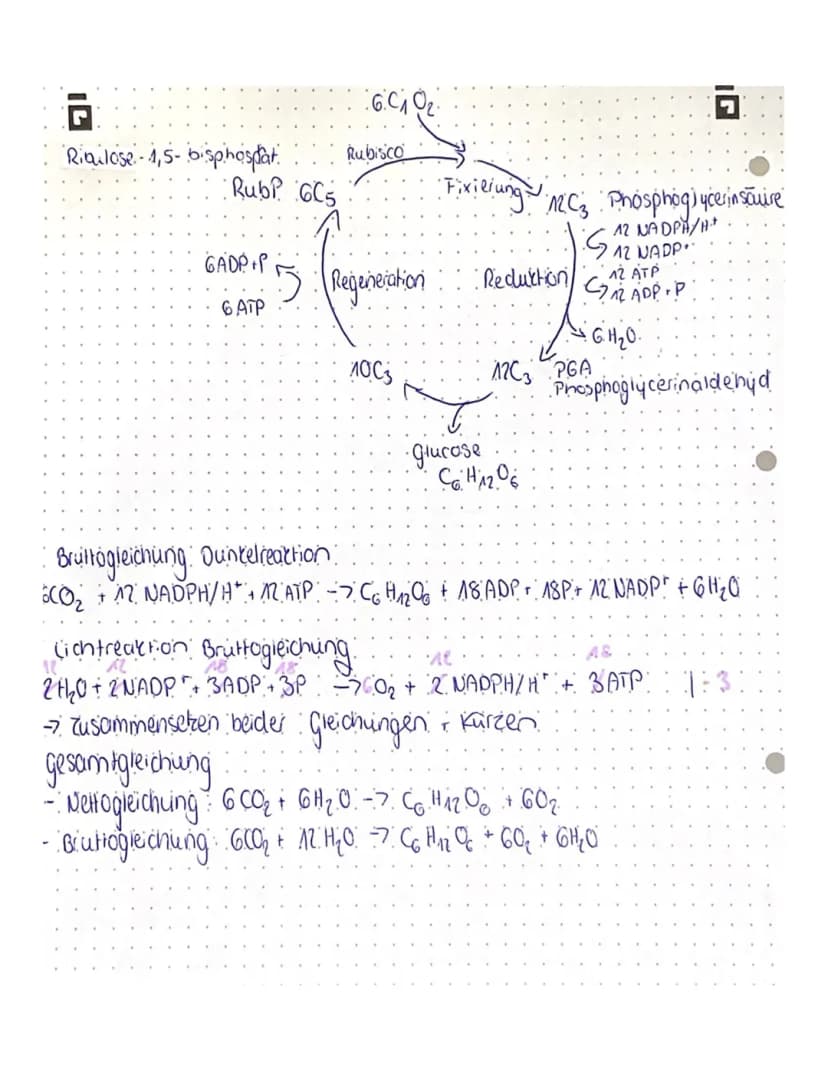 6 C₁ O₂
Ribulose-1,5-bisphosphat
Rubisco
RubP 6C₅
Fixierung
12C₃ Phosphoglycerinsäure
12 NADPH/H⁺
12 NADP⁺
12 ATP
12 ADP+P
6ADP+P
6 ATP
Regeneration
Reduktion
6H₂O
10C₃
12C₃ PGA
Phosphoglycerinaldehyd
Glucose
C₆H₁₂O₆
Bruttogleichung Dunkelreaktion:
6CO₂ + 12 NADPH/H⁺ + 12 ATP -> C₆H₁₂O₆ + 18 ADP + 18P + 12 NADP⁺ + 6H₂O
Lichtreaktion Bruttogleichung
12 12 18 18 12 18
2H₂O + 2NADP⁺ + 3ADP + 3P -> 6O₂ + 2 NADPH/H⁺ + 3ATP |· 3
-> Zusammensetzen beider Gleichungen + Kürzen
Gesamtgleichung
- Nettogleichung: 6CO₂ + 6H₂O -> C₆H₁₂O₆ + 6O₂
- Bruttogleichung: 6CO₂ + 12 H₂O -> C₆H₁₂O₆ + 6O₂ + 6H₂O